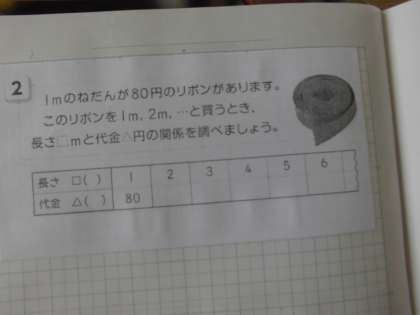 2
1mのねだんが80円のリボンがあります。
このリボンを1m，2m，…と買うとき，
長さ□mと代金△円の関係を調べましょう。
長さ □( ) 1 2 3 4 5 6
代金 △( ) 80